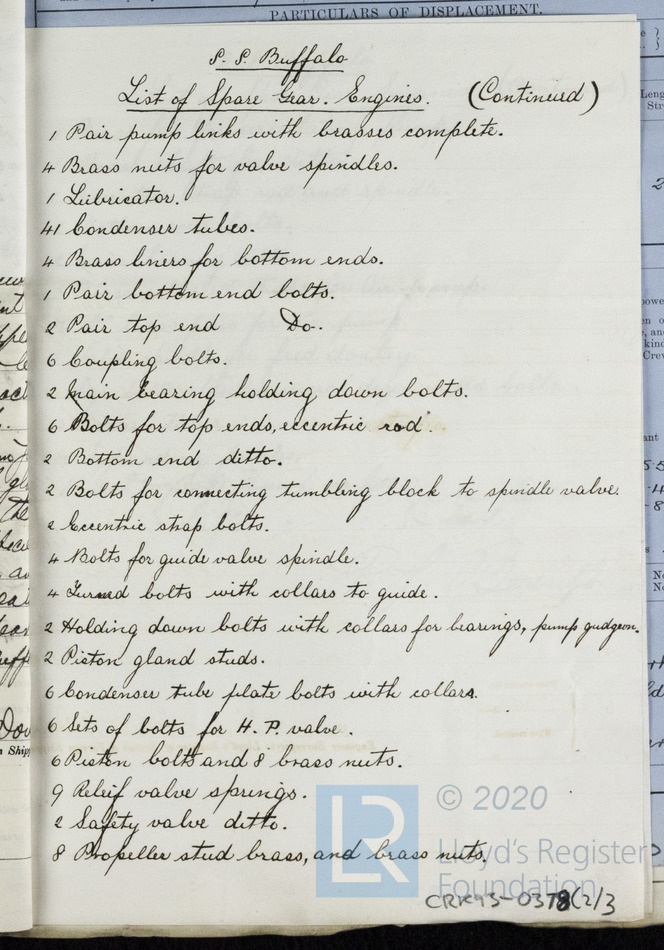 PARTICULARS OF DISPLACEMENT.
S. S. Buffalo
List of Spare Gear. Engines. (Continued)
1 Pair pump links with brasses complete.
4 Brass nuts for valve spindles.
1 Lubricator.
41 Condenser tubes.
4 Brass liners for bottom ends.
1 Pair bottom end bolts.
2 Pair top end Do.
6 Coupling bolts.
2 Main bearing holding down bolts.
6 Bolts for top ends, eccentric rod.
2 Bottom end ditto.
2 Bolts for connecting tumbling block to spindle valve.
2 Eccentric strap bolts.
4 Bolts for guide valve spindle.
4 Turned bolts with collars to guide.
2 Holding down bolts with collars for bearings, pump gudgeon.
2 Piston gland studs.
6 Condenser tube plate bolts with collars.
6 Sets of bolts for H. P. valve.
6 Piston bolts and 8 brass nuts.
9 Releif valve springs.
2 Safety valve ditto.
8 Propeller stud brass, and brass nuts.
LR
© 2020
Lloyd's Register
Foundation
CRK93-0378(2)/3